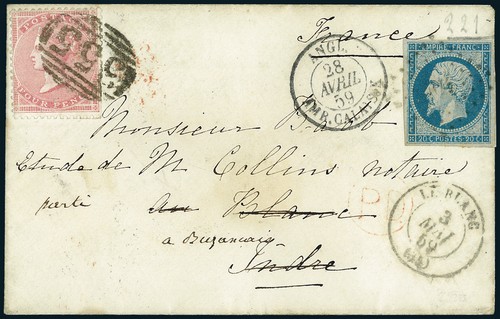 221
POSTAGE
FOUR PENCE
France
ANGL.
28
AVRIL
59
AMB. CALAIS
EMPIRE FRANC
20 C. POSTES 20 C.
Monsieur
Etude de M Collins notaire
parti
au Blanc
à Buzançais
Indre
PD
LE BLANC
3
MAI
59